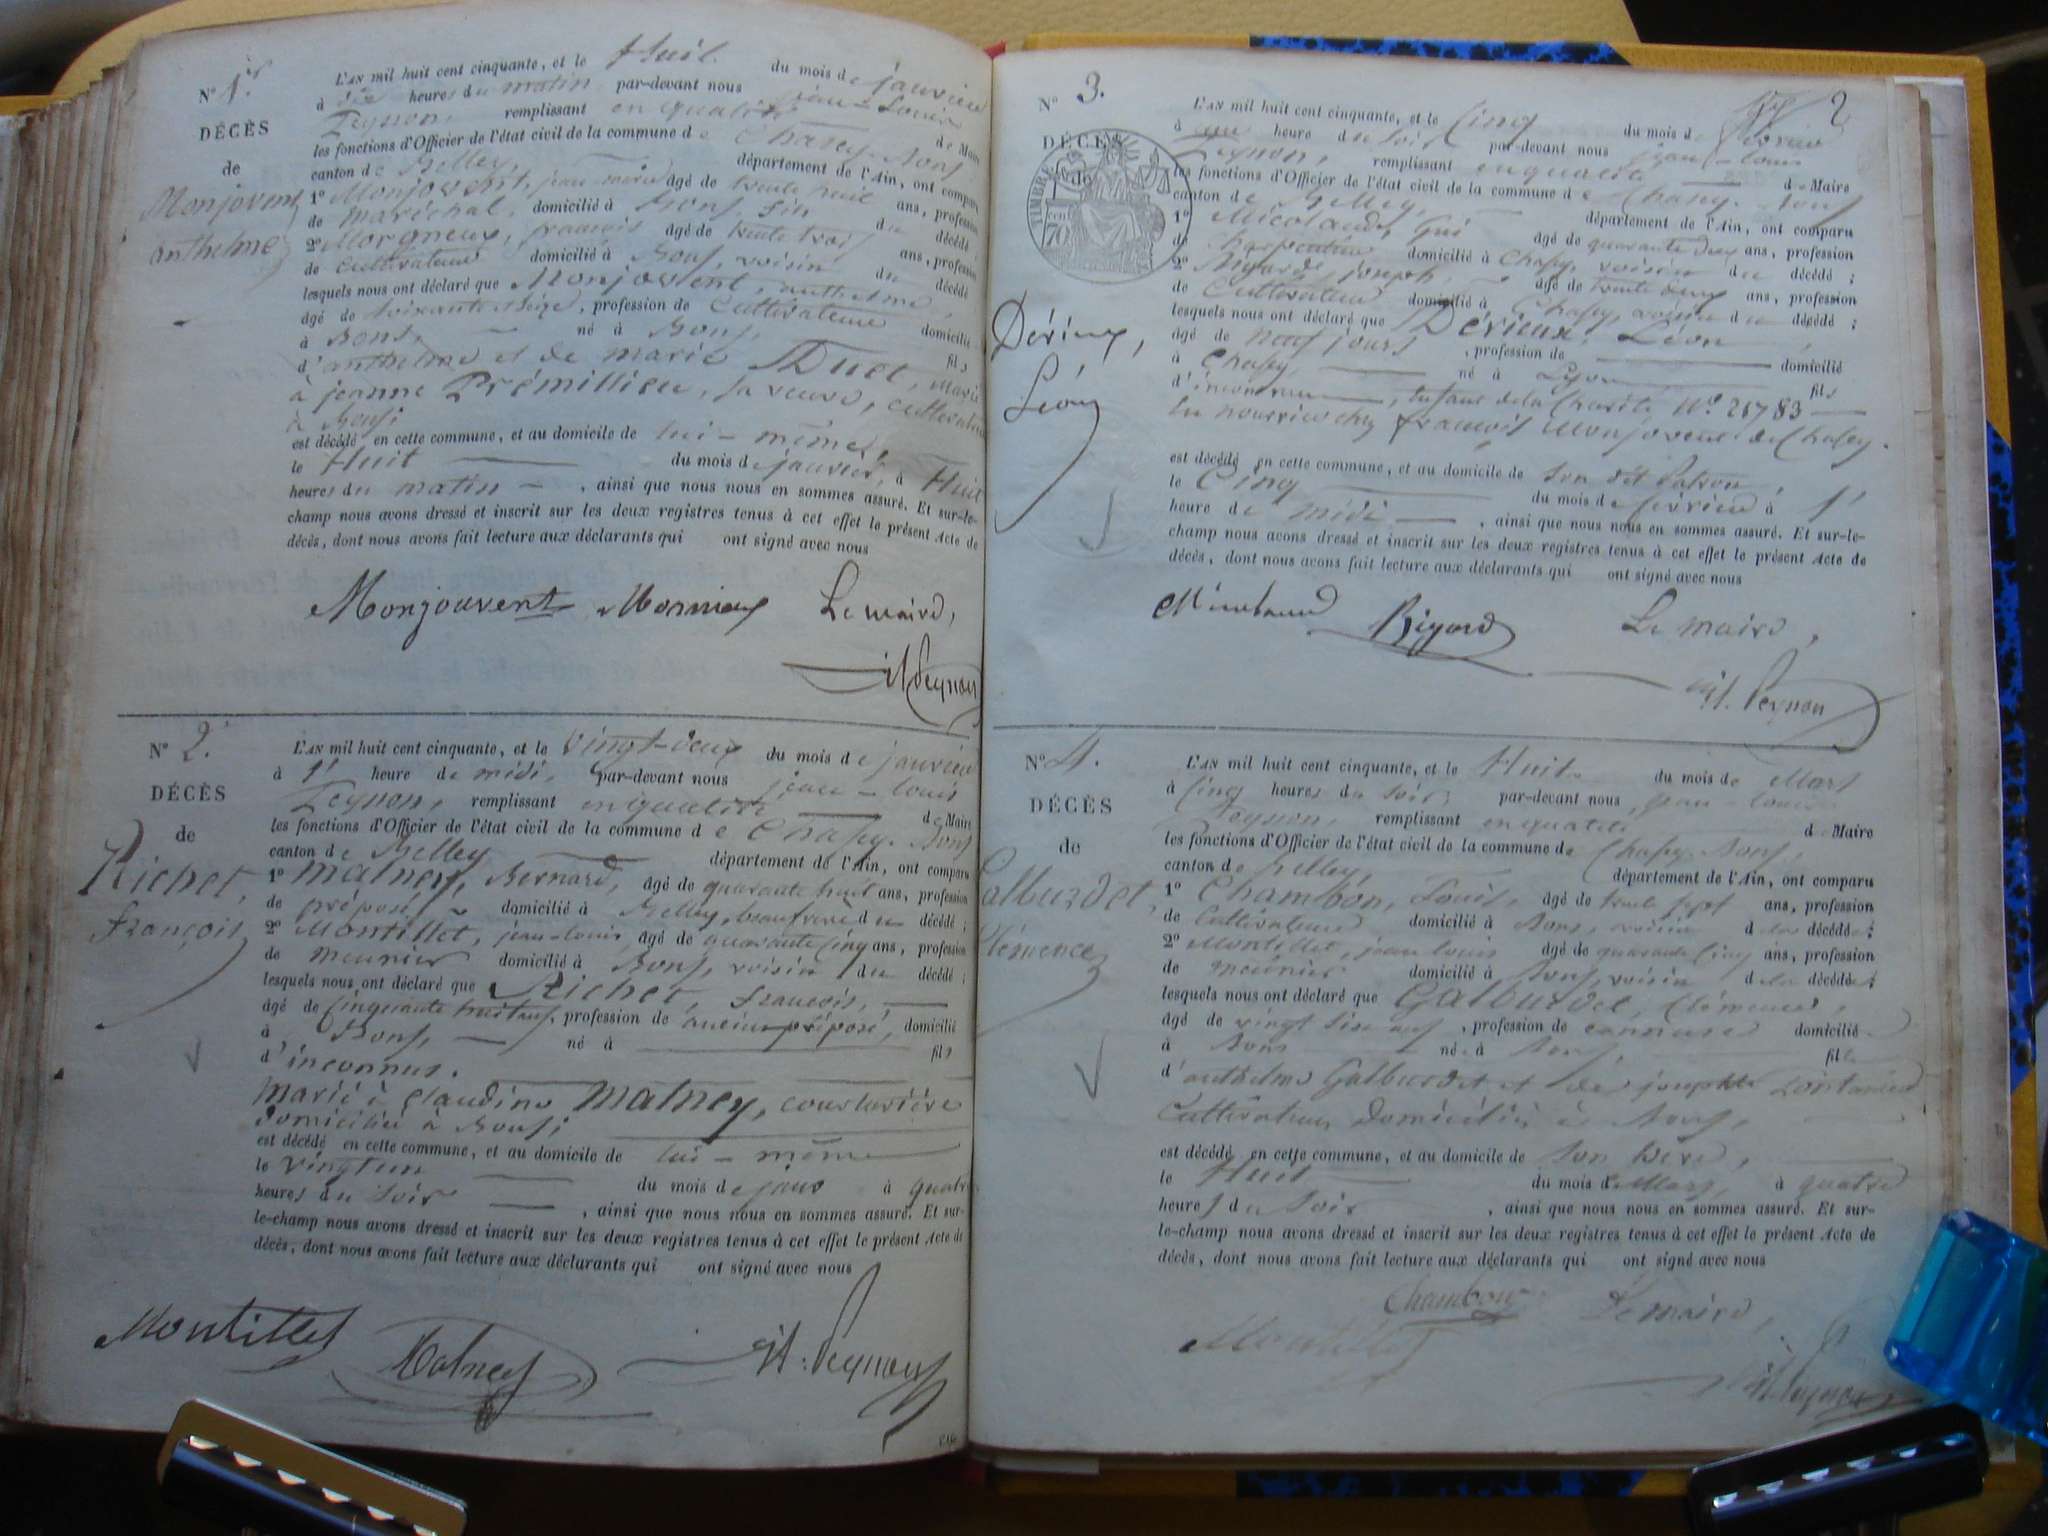 N° 1er
DÉCÈS
de
Monjovent
anthelme
L'AN mil huit cent cinquante, et le Huit du mois de janvier
à dix heures du matin par-devant nous jean-Louis
Peysson, remplissant en qualité de Maire
les fonctions d'Officier de l'état civil de la commune de Chazey-Bons
canton de Belley, département de l'Ain, ont comparu
1° Monjovent, jean-marie âgé de trente huit ans, profession
de maréchal, domicilié à Bons, fils du décédé
2° Morgneux, françois âgé de trente trois ans, profession
de cultivateur domicilié à Bons, voisin du décédé
lesquels nous ont déclaré que Monjovent, anthelme,
âgé de soixante seize, profession de Cultivateur domicilié
à Bons, né à Bons, fils
d'anthelme et de marie Duet, marié
à jeanne Prémillieu, sa veuve, cultivateur
à Bons;
est décédé en cette commune, et au domicile de lui-même,
le Huit du mois de janvier, à Huit
heures du matin, ainsi que nous nous en sommes assuré. Et sur-le-
champ nous avons dressé et inscrit sur les deux registres tenus à cet effet le présent Acte de
décès, dont nous avons fait lecture aux déclarants qui ont signé avec nous
Monjouvent Le maire,
N° 2.
DÉCÈS
de
Richet,
françois
L'AN mil huit cent cinquante, et le vingt-deux du mois de janvier
à 1' heure de midi, par-devant nous jean-louis
remplissant en qualité de Maire
les fonctions d'Officier de l'état civil de la commune de Chazey-Bons
canton de Belley département de l'Ain, ont comparu
1° Malney, Bernard, âgé de quarante huit ans, profession
de préposé domicilié à Belley, beaufrère du décédé;
2° Montillet, jean-louis âgé de quarante cinq ans, profession
de meunier domicilié à Bons, voisin du décédé;
lesquels nous ont déclaré que Richet, françois,
âgé de cinquante huit ans, profession de ancien préposé, domicilié
à Bons, né à fils
d'inconnus.
marié à claudine Malney, couturière
domicilié à Bons;
est décédé en cette commune, et au domicile de lui-même
le vingt un du mois de janv à quatre
heures du soir, ainsi que nous nous en sommes assuré. Et sur-
le-champ nous avons dressé et inscrit sur les deux registres tenus à cet effet le présent Acte de
décès, dont nous avons fait lecture aux déclarants qui ont signé avec nous
Montillet Malney
N° 3.
2
DÉCÈS
de
TIMBRE
70
Dérieux,
Léon
L'AN mil huit cent cinquante, et le Cinq du mois de février
à une heure du soir par-devant nous jean-louis
remplissant en qualité de Maire
les fonctions d'Officier de l'état civil de la commune de Chazey-Bons
canton de Belley, département de l'Ain, ont comparu
1° Gui âgé de quarante deux ans, profession
de charpentier domicilié à Chazey, voisin du décédé;
2° Rigard, joseph, âgé de trente deux ans, profession
de Cultivateur domicilié à Chazey, voisin du décédé;
lesquels nous ont déclaré que Dérieux, Léon
âgé de neuf jours, profession de domicilié
à Chazey, né à Lyon fils
d'inconnu, enfant de la Charité N° 21783
en nourrice chez françois Monjovent de Chazey.
est décédé en cette commune, et au domicile de son dit Patron,
le Cinq du mois de février à 1'
heure de midi, ainsi que nous nous en sommes assuré. Et sur-le-
champ nous avons dressé et inscrit sur les deux registres tenus à cet effet le présent Acte de
décès, dont nous avons fait lecture aux déclarants qui ont signé avec nous
Rigard Le maire,
N° 4.
DÉCÈS
de
Galburdet,
Clémence
L'AN mil huit cent cinquante, et le Huit du mois de Mars
à cinq heures du soir par-devant nous jean-louis
remplissant en qualité de Maire
les fonctions d'Officier de l'état civil de la commune de Chazey-Bons,
canton de Belley, département de l'Ain, ont comparu
1° Chambon, Louis, âgé de trente sept ans, profession
de Cultivateur domicilié à Bons, voisin de la décédée;
2° Montillet, jean louis âgé de quarante cinq ans, profession
de meunier domicilié à Bons, voisin de la décédée;
lesquels nous ont déclaré que Galburdet, Clémence,
âgé de vingt six ans, profession de domicilié
à Bons né à Bons, fille
d'anthelme Galburdet et de
Cultivateurs domiciliés à Bons,
est décédé en cette commune, et au domicile de son Père,
le Huit du mois de Mars, à quatre
heures du soir, ainsi que nous nous en sommes assuré. Et sur-
le-champ nous avons dressé et inscrit sur les deux registres tenus à cet effet le présent Acte de
décès, dont nous avons fait lecture aux déclarants qui ont signé avec nous
Chambon Le maire,
Montillet